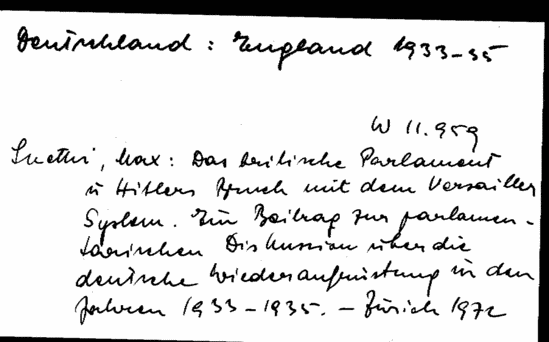 Deutschland : England 1933-35
W 11.959
Suethi, Max : Das britische Parlament
u Hitlers Bruch mit dem Versailler
System. Ein Beitrag zur parlamen-
tarischen Diskussion über die
deutsche Wiederaufrüstung in den
Jahren 1933-1935. - Zürich 1972